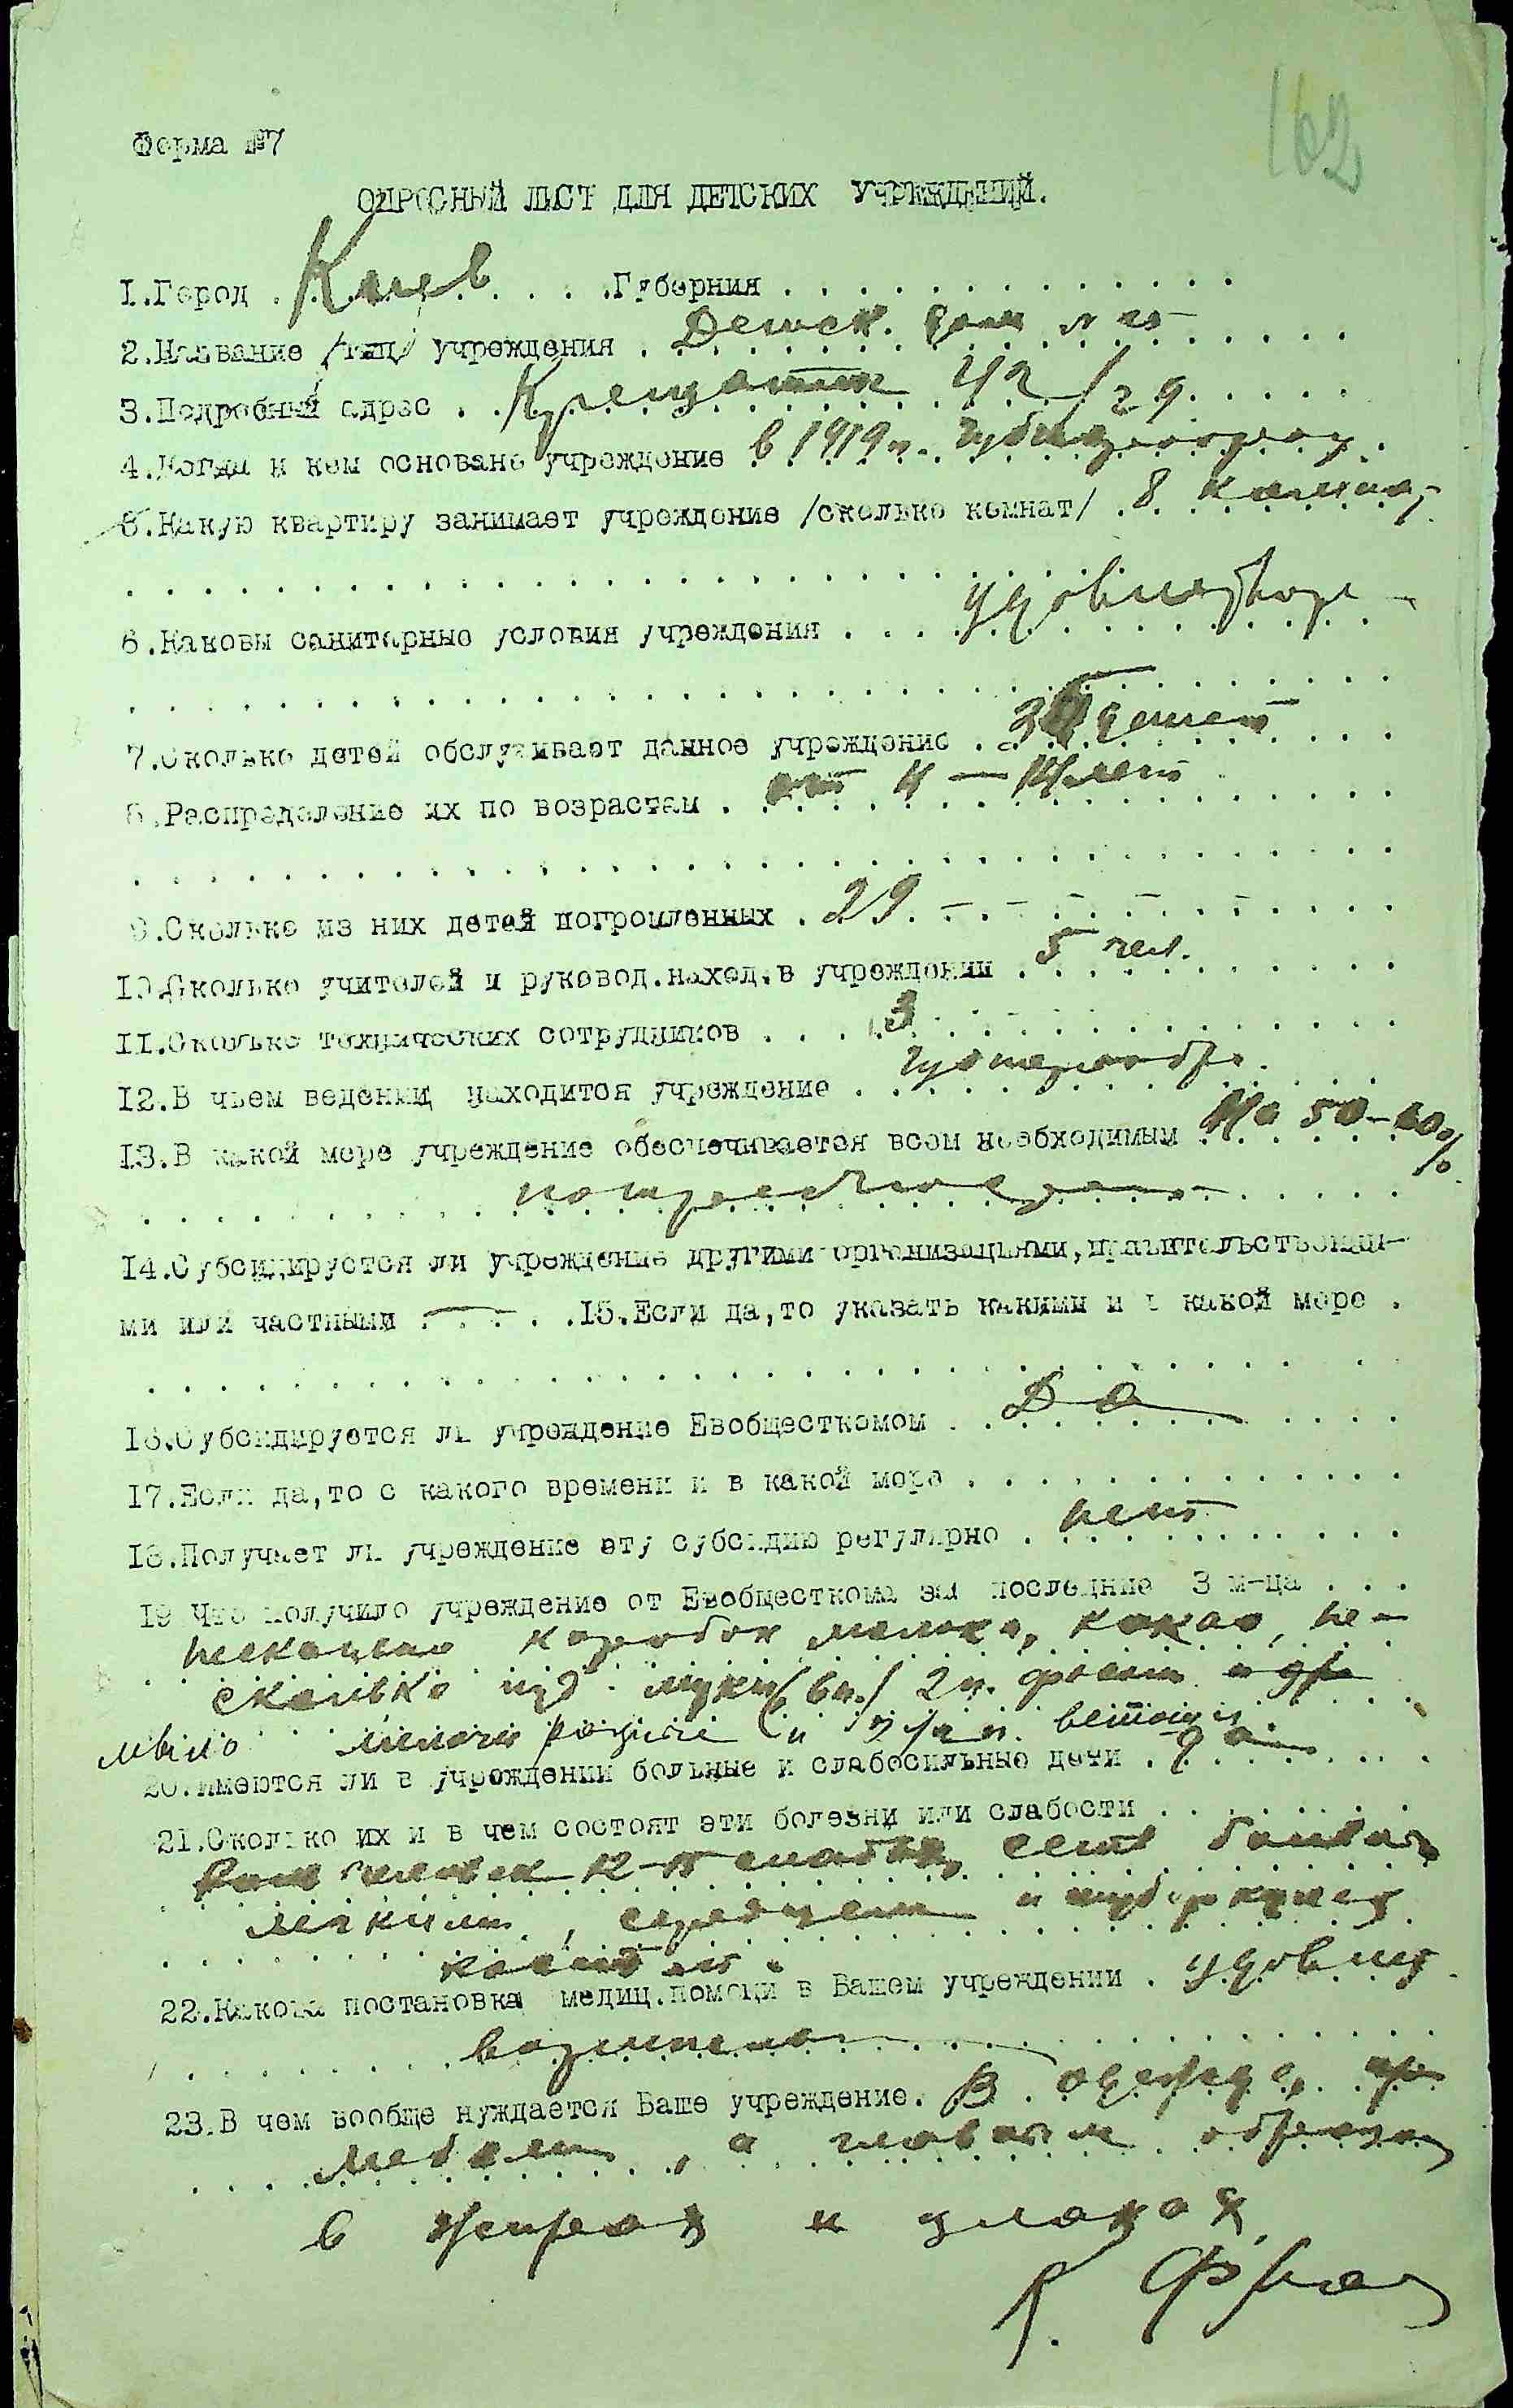 162
Форма №7
ОПРОСНЫЙ ЛИСТ ДЛЯ ДЕТСКИХ УЧРЕЖДЕНИЙ.
1.Город . Киев . . . .Губерния . . . . . . . . . . . .
2.Название /тип/ учреждения . Детск. дом № 25
3.Подробный адрес . . Крещатик 42/29 . . . .
4.Когда и кем основано учреждение в 1919 г.
5.Какую квартиру занимает учреждение /сколько комнат/ . 8 комнат
6.Каковы санитарные условия учреждения . . . . удовлетвор
7.Сколько детей обслуживает данное учреждение . . детей
8.Распределение их по возрастам . от 4 — 14 лет
9.Сколько из них детей погромленных . 29 . — . — . — . —
10.Сколько учителей и руковод.наход.в учреждении . 5 чел.
11.Сколько технических сотрудников . . . . 3
12.В чьем ведении находится учреждение .
13.В какой мере учреждение обеспечивается всем необходимым На 50-60%
14.Субсидируется ли учреждение другими организациями,правительственны-
ми или частными . — . — . .15.Если да,то указать какими и в какой мере .
16.Субсидируется ли учреждение Евобщесткомом . . Да
17.Если да,то с какого времени и в какой мере . . . . . . . . . . .
18.Получает ли учреждение эту субсидию регулярно . нет
19.Что получило учреждение от Евобщесткома за последние 3 м-ца . . .
несколько коробок молока, какао, не-
сколько пуд. муки (6п./ 2 п. фасоли и др
мыло
20.Имеются ли в учреждении больные и слабосильные дети . да
21.Сколько их и в чем состоят эти болезни или слабости . . . . . . .
человек слабы, есть больны
легкими, сердцем и туберкулез
костей.
22.Какова постановка медиц.помощи в Вашем учреждении . удовлет
ворительна
23.В чем вообще нуждается Ваше учреждение. В одежде,
мебели, а главным образом
в жирах и
К.